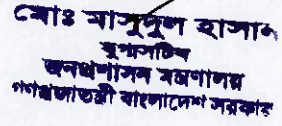 মোঃ মাসুদুল হাসান
যুগ্মসচিব
জনপ্রশাসন মন্ত্রণালয়
গণপ্রজাতন্ত্রী বাংলাদেশ সরকার